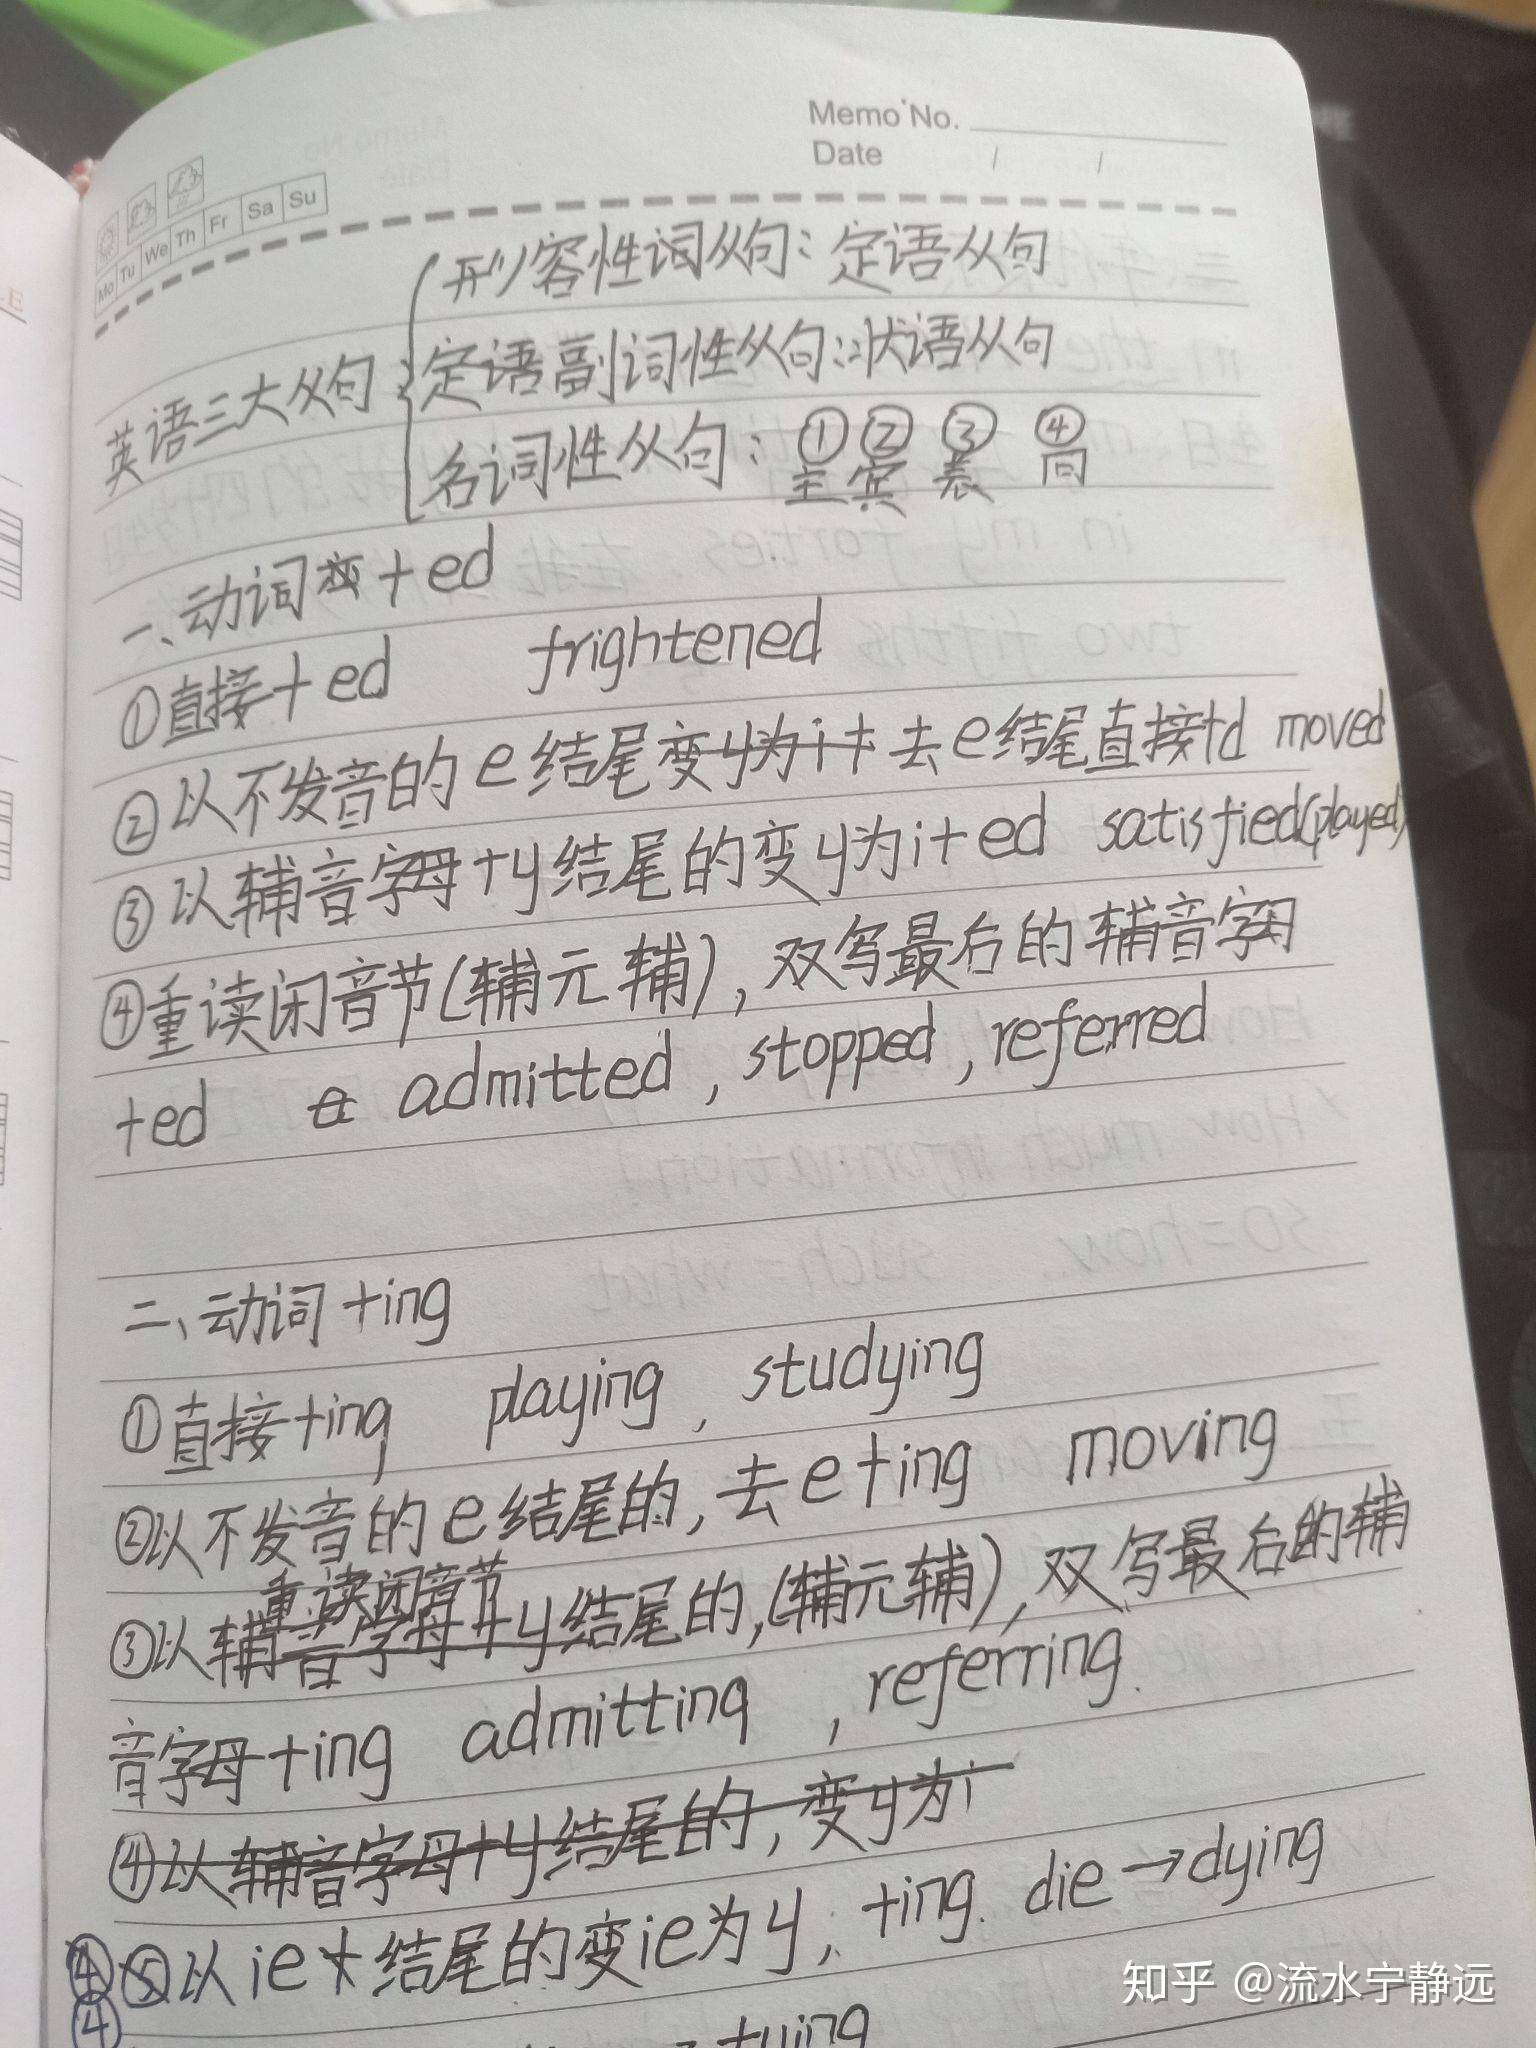 Memo No.
Date / /
Mo Tu We Th Fr Sa Su
形容性词从句：定语从句
英语三大从句
定语副词性从句：状语从句
名词性从句：① ② ③ ④
主 宾 表 同
一、动词变+ed
①直接+ed frightened
②以不发音的e结尾变y为i+去e结尾直接+d moved
③以辅音字母+y结尾的变y为i+ed satisfied(played)
④重读闭音节(辅元辅)，双写最后的辅音字母
+ed admitted，stopped，referred
二、动词+ing
①直接+ing playing，studying
②以不发音的e结尾的，去e+ing moving
重读闭音节
③以辅音字母+y结尾的，(辅元辅)，双写最后的辅
音字母+ing admitting，referring.
④以辅音字母+y结尾的，变y为i
④⑤以ie结尾的变ie为y，+ing. die→dying
④
tying
知乎 @流水宁静远